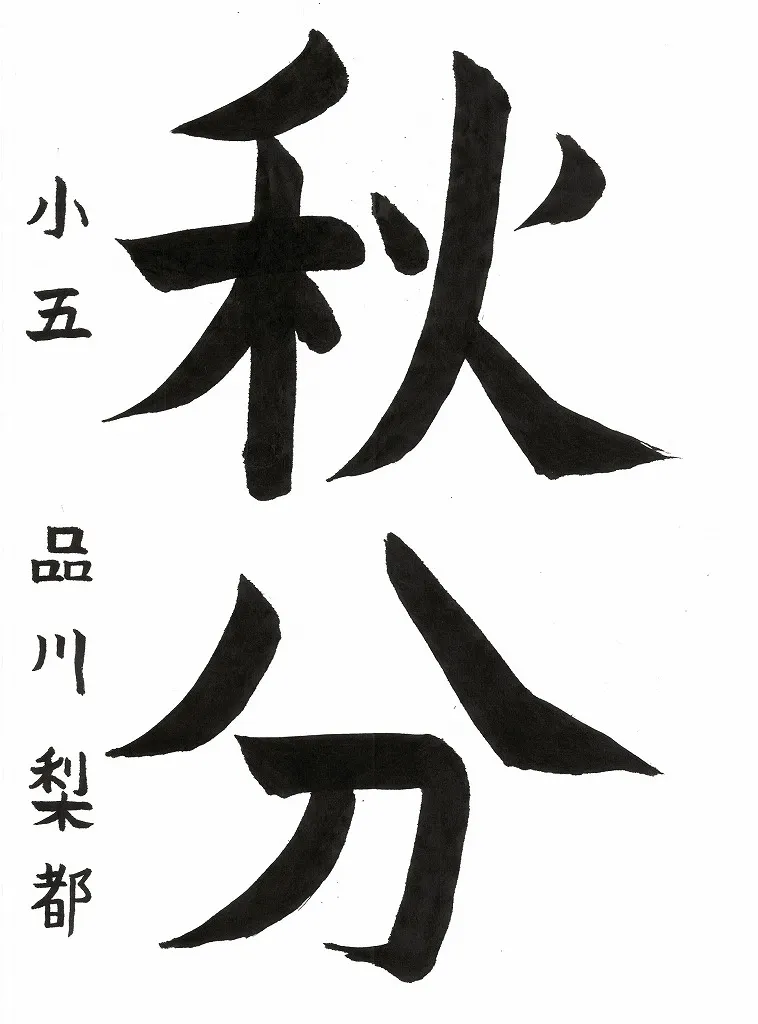 秋分
小五 品川梨都